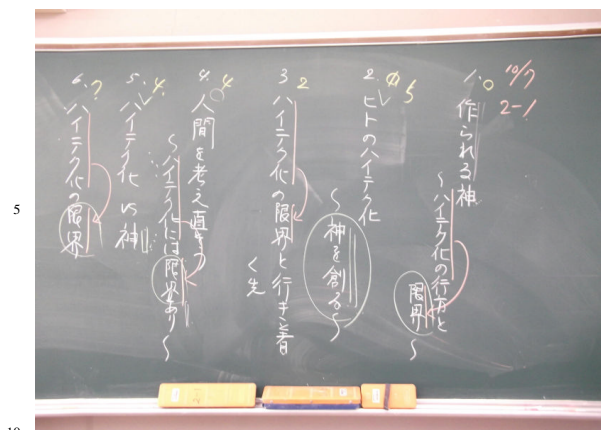 10/7
2-1
1. 0
作られる神
~ハイテク化の行方と
限界~
2. 5
ヒトのハイテク化
~神を創る~
3. 2
ハイテク化の限界と行き着
く先
4. 4
人間を考え直す
~ハイテク化には限界あり~
5. 4
ハイテク化 vs 神
6. ?
ハイテク化の限界
5
10